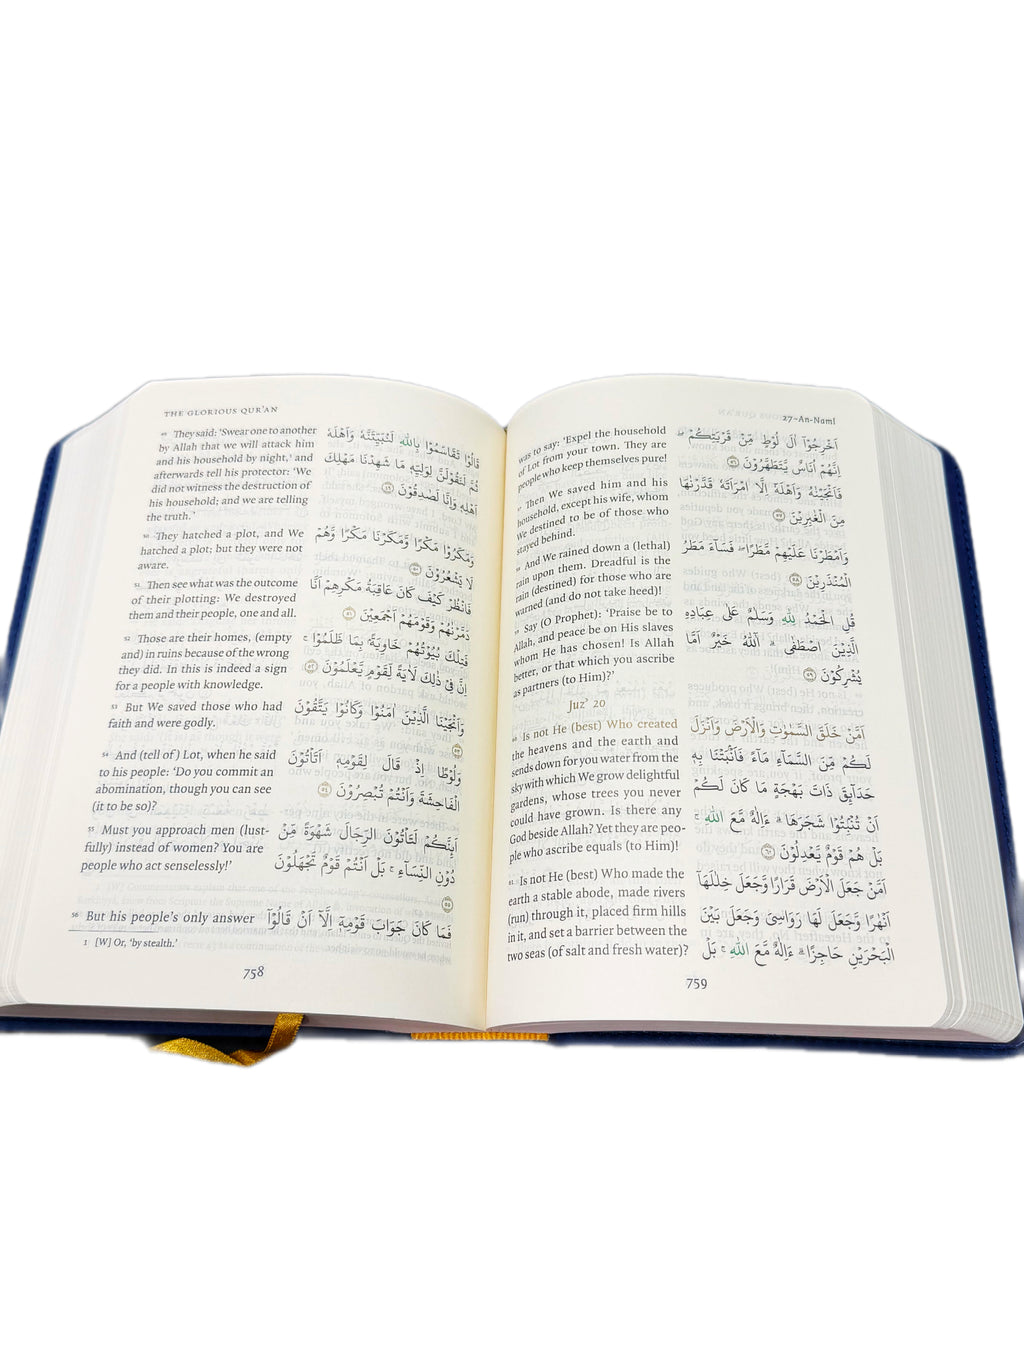 THE GLORIOUS QUR'AN
49 They said: 'Swear one to another
by Allah that we will attack him
and his household by night,¹ and
afterwards tell his protector: 'We
did not witness the destruction of
his household; and we are telling
the truth.'
50 They hatched a plot, and We
hatched a plot; but they were not
aware.
51 Then see what was the outcome
of their plotting: We destroyed
them and their people, one and all.
52 Those are their homes, (empty
and) in ruins because of the wrong
they did. In this is indeed a sign
for a people with knowledge.
53 But We saved those who had
faith and were godly.
54 And (tell of) Lot, when he said
to his people: 'Do you commit an
abomination, though you can see
(it to be so)?
55 Must you approach men (lust-
fully) instead of women? You are
people who act senselessly!'
56 But his people's only answer
قَالُوْا تَقَاسَمُوْا بِاللّٰهِ لَنُبَيِّتَنَّهٗ وَاَهْلَهٗ
ثُمَّ لَنَقُوْلَنَّ لِوَلِيِّهٖ مَا شَهِدْنَا مَهْلِكَ
اَهْلِهٖ وَاِنَّا لَصٰدِقُوْنَ ٤٩
وَمَكَرُوْا مَكْرًا وَّمَكَرْنَا مَكْرًا وَّهُمْ
لَا يَشْعُرُوْنَ ٥٠
فَانْظُرْ كَيْفَ كَانَ عَاقِبَةُ مَكْرِهِمْ اَنَّا
دَمَّرْنٰهُمْ وَقَوْمَهُمْ اَجْمَعِيْنَ ٥١
فَتِلْكَ بُيُوْتُهُمْ خَاوِيَةًۢ بِمَا ظَلَمُوْا ۚ
اِنَّ فِيْ ذٰلِكَ لَاٰيَةً لِّقَوْمٍ يَّعْلَمُوْنَ ٥٢
وَاَنْجَيْنَا الَّذِيْنَ اٰمَنُوْا وَكَانُوْا يَتَّقُوْنَ
٥٣
وَلُوْطًا اِذْ قَالَ لِقَوْمِهٖٓ اَتَأْتُوْنَ
الْفَاحِشَةَ وَاَنْتُمْ تُبْصِرُوْنَ ٥٤
اَئِنَّكُمْ لَتَأْتُوْنَ الرِّجَالَ شَهْوَةً مِّنْ
دُوْنِ النِّسَآءِ ۚ بَلْ اَنْتُمْ قَوْمٌ تَجْهَلُوْنَ
٥٥
فَمَا كَانَ جَوَابَ قَوْمِهٖٓ اِلَّآ اَنْ قَالُوْٓا
1 [W] Or, 'by stealth.'
758
27–An-Naml
was to say: 'Expel the household
of Lot from your town. They are
people who keep themselves pure!
57 Then We saved him and his
household, except his wife, whom
We destined to be of those who
stayed behind.
58 And We rained down a (lethal)
rain upon them. Dreadful is the
rain (destined) for those who are
warned (and do not take heed)!
59 Say (O Prophet): 'Praise be to
Allah, and peace be on His slaves
whom He has chosen! Is Allah
better, or that which you ascribe
as partners (to Him)?'
Juz' 20
60 Is not He (best) Who created
the heavens and the earth and
sends down for you water from the
sky with which We grow delightful
gardens, whose trees you never
could have grown. Is there any
God beside Allah? Yet they are peo-
ple who ascribe equals (to Him)!
61 Is not He (best) Who made the
earth a stable abode, made rivers
(run) through it, placed firm hills
in it, and set a barrier between the
two seas (of salt and fresh water)?
اَخْرِجُوْٓا اٰلَ لُوْطٍ مِّنْ قَرْيَتِكُمْ ۚ
اِنَّهُمْ اُنَاسٌ يَّتَطَهَّرُوْنَ ٥٦
فَاَنْجَيْنٰهُ وَاَهْلَهٗٓ اِلَّا امْرَاَتَهٗ قَدَّرْنٰهَا
مِنَ الْغٰبِرِيْنَ ٥٧
وَاَمْطَرْنَا عَلَيْهِمْ مَّطَرًا ۚ فَسَآءَ مَطَرُ
الْمُنْذَرِيْنَ ٥٨
قُلِ الْحَمْدُ لِلّٰهِ وَسَلٰمٌ عَلٰى عِبَادِهِ
الَّذِيْنَ اصْطَفٰى ۗ آللّٰهُ خَيْرٌ اَمَّا
يُشْرِكُوْنَ ٥٩
اَمَّنْ خَلَقَ السَّمٰوٰتِ وَالْاَرْضَ وَاَنْزَلَ
لَكُمْ مِّنَ السَّمَآءِ مَآءً فَاَنْۢبَتْنَا بِهٖ
حَدَآئِقَ ذَاتَ بَهْجَةٍ مَا كَانَ لَكُمْ
اَنْ تُنْۢبِتُوْا شَجَرَهَا ۗ ءَاِلٰهٌ مَّعَ اللّٰهِ ۚ
بَلْ هُمْ قَوْمٌ يَّعْدِلُوْنَ ٦٠
اَمَّنْ جَعَلَ الْاَرْضَ قَرَارًا وَّجَعَلَ خِلٰلَهَآ
اَنْهٰرًا وَّجَعَلَ لَهَا رَوَاسِيَ وَجَعَلَ بَيْنَ
الْبَحْرَيْنِ حَاجِزًا ۗ ءَاِلٰهٌ مَّعَ اللّٰهِ ۚ بَلْ
759